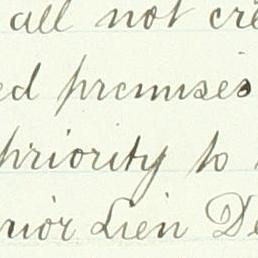 all not cre
ed premises
priority to
rior Lien De